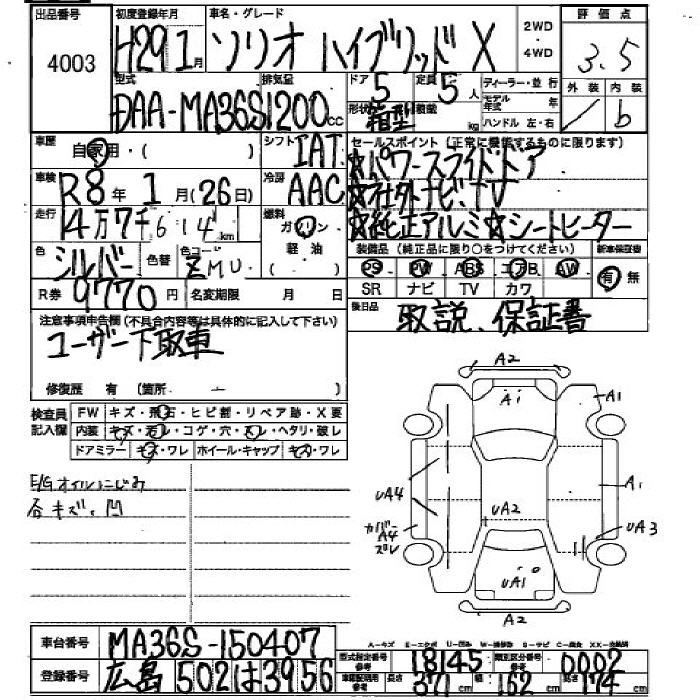 出品番号 初度登録年月 車名・グレード 評価点
4003 H29 1月 ソリオ ハイブリッド X 2WD ・ 4WD 3.5
型式 排気量 ドア 5 定員 5人 ディーラー・並行 外装 内装
DAA-MA36S 1200cc 形状 箱型 積載 kg モデル年式 年 ハンドル 左・右 / b
車歴 自家用・( ) シフト IAT セールスポイント(正常に機能するものに限ります)
車検 R8年 1月(26日) 冷房 AAC ☆パワースライドドア
☆社外ナビ.TV
走行 14万7千614km 燃料 ガソリン ・ 軽油 ( ・ ) ☆純正アルミ☆シートヒーター
色 シルバー 色替 色コード ZMU 装備品(純正品に限り○をつけてください) 新車保証書
PS PW ABS エアB AW 有 無
R券 9770円 名変期限 月 日 SR ナビ TV カワ
注意事項申告欄(不具合内容等は具体的に記入して下さい) 後日品 取説、保証書
ユーザー下取車
修復歴 有 (箇所. - )
検査員記入欄 FW キズ・飛石・ヒビ割・リペア跡・X要
内装 キズ・ヨゴレ・コゲ・穴・スレ・ヘタリ・破レ
ドアミラー キズ・ワレ ホイール・キャップ キズ・ワレ
E/Gオイルにじみ
各キズ、凹
A2
A1 A1
UA4 A1
UA2
カバー A4 ズレ UA3
UA1
A2
車台番号 MA36S-150407
A-キズ E-エクボ U-凹み W-補修跡 S-サビ C-腐食 XX-交換済
登録番号 広島 502 は 3956
型式指定番号 参考 18145 類別区分番号 参考 0002
車両諸元用 参考 長さ 371cm 幅 162cm 高さ 174cm